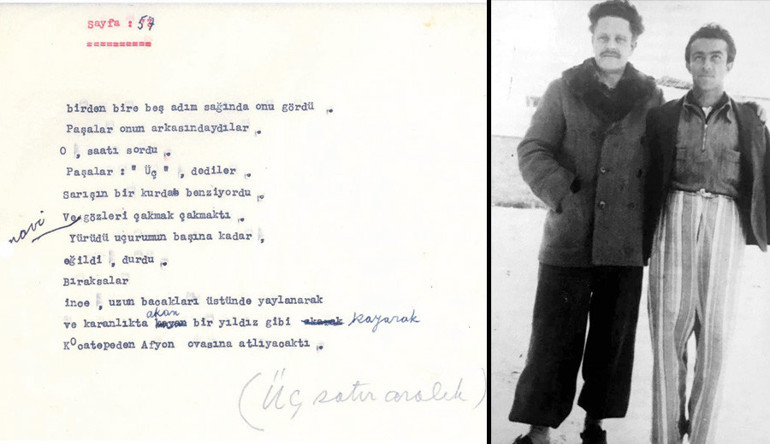 Sayfa : 54
birden bire beş adım sağında onu gördü .
Paşalar onun arkasındaydılar .
O , saatı sordu .
Paşalar : " Üç " , dediler .
Sarışın bir kurda benziyordu .
mavi
Ve gözleri çakmak çakmaktı .
Yürüdü uçurumun başına kadar ,
eğildi , durdu .
Bıraksalar
ince , uzun bacakları üstünde yaylanarak
akan
ve karanlıkta kayan bir yıldız gibi akarak kayarak
Kocatepeden Afyon ovasına atlıyacaktı .
(Üç satır aralık)